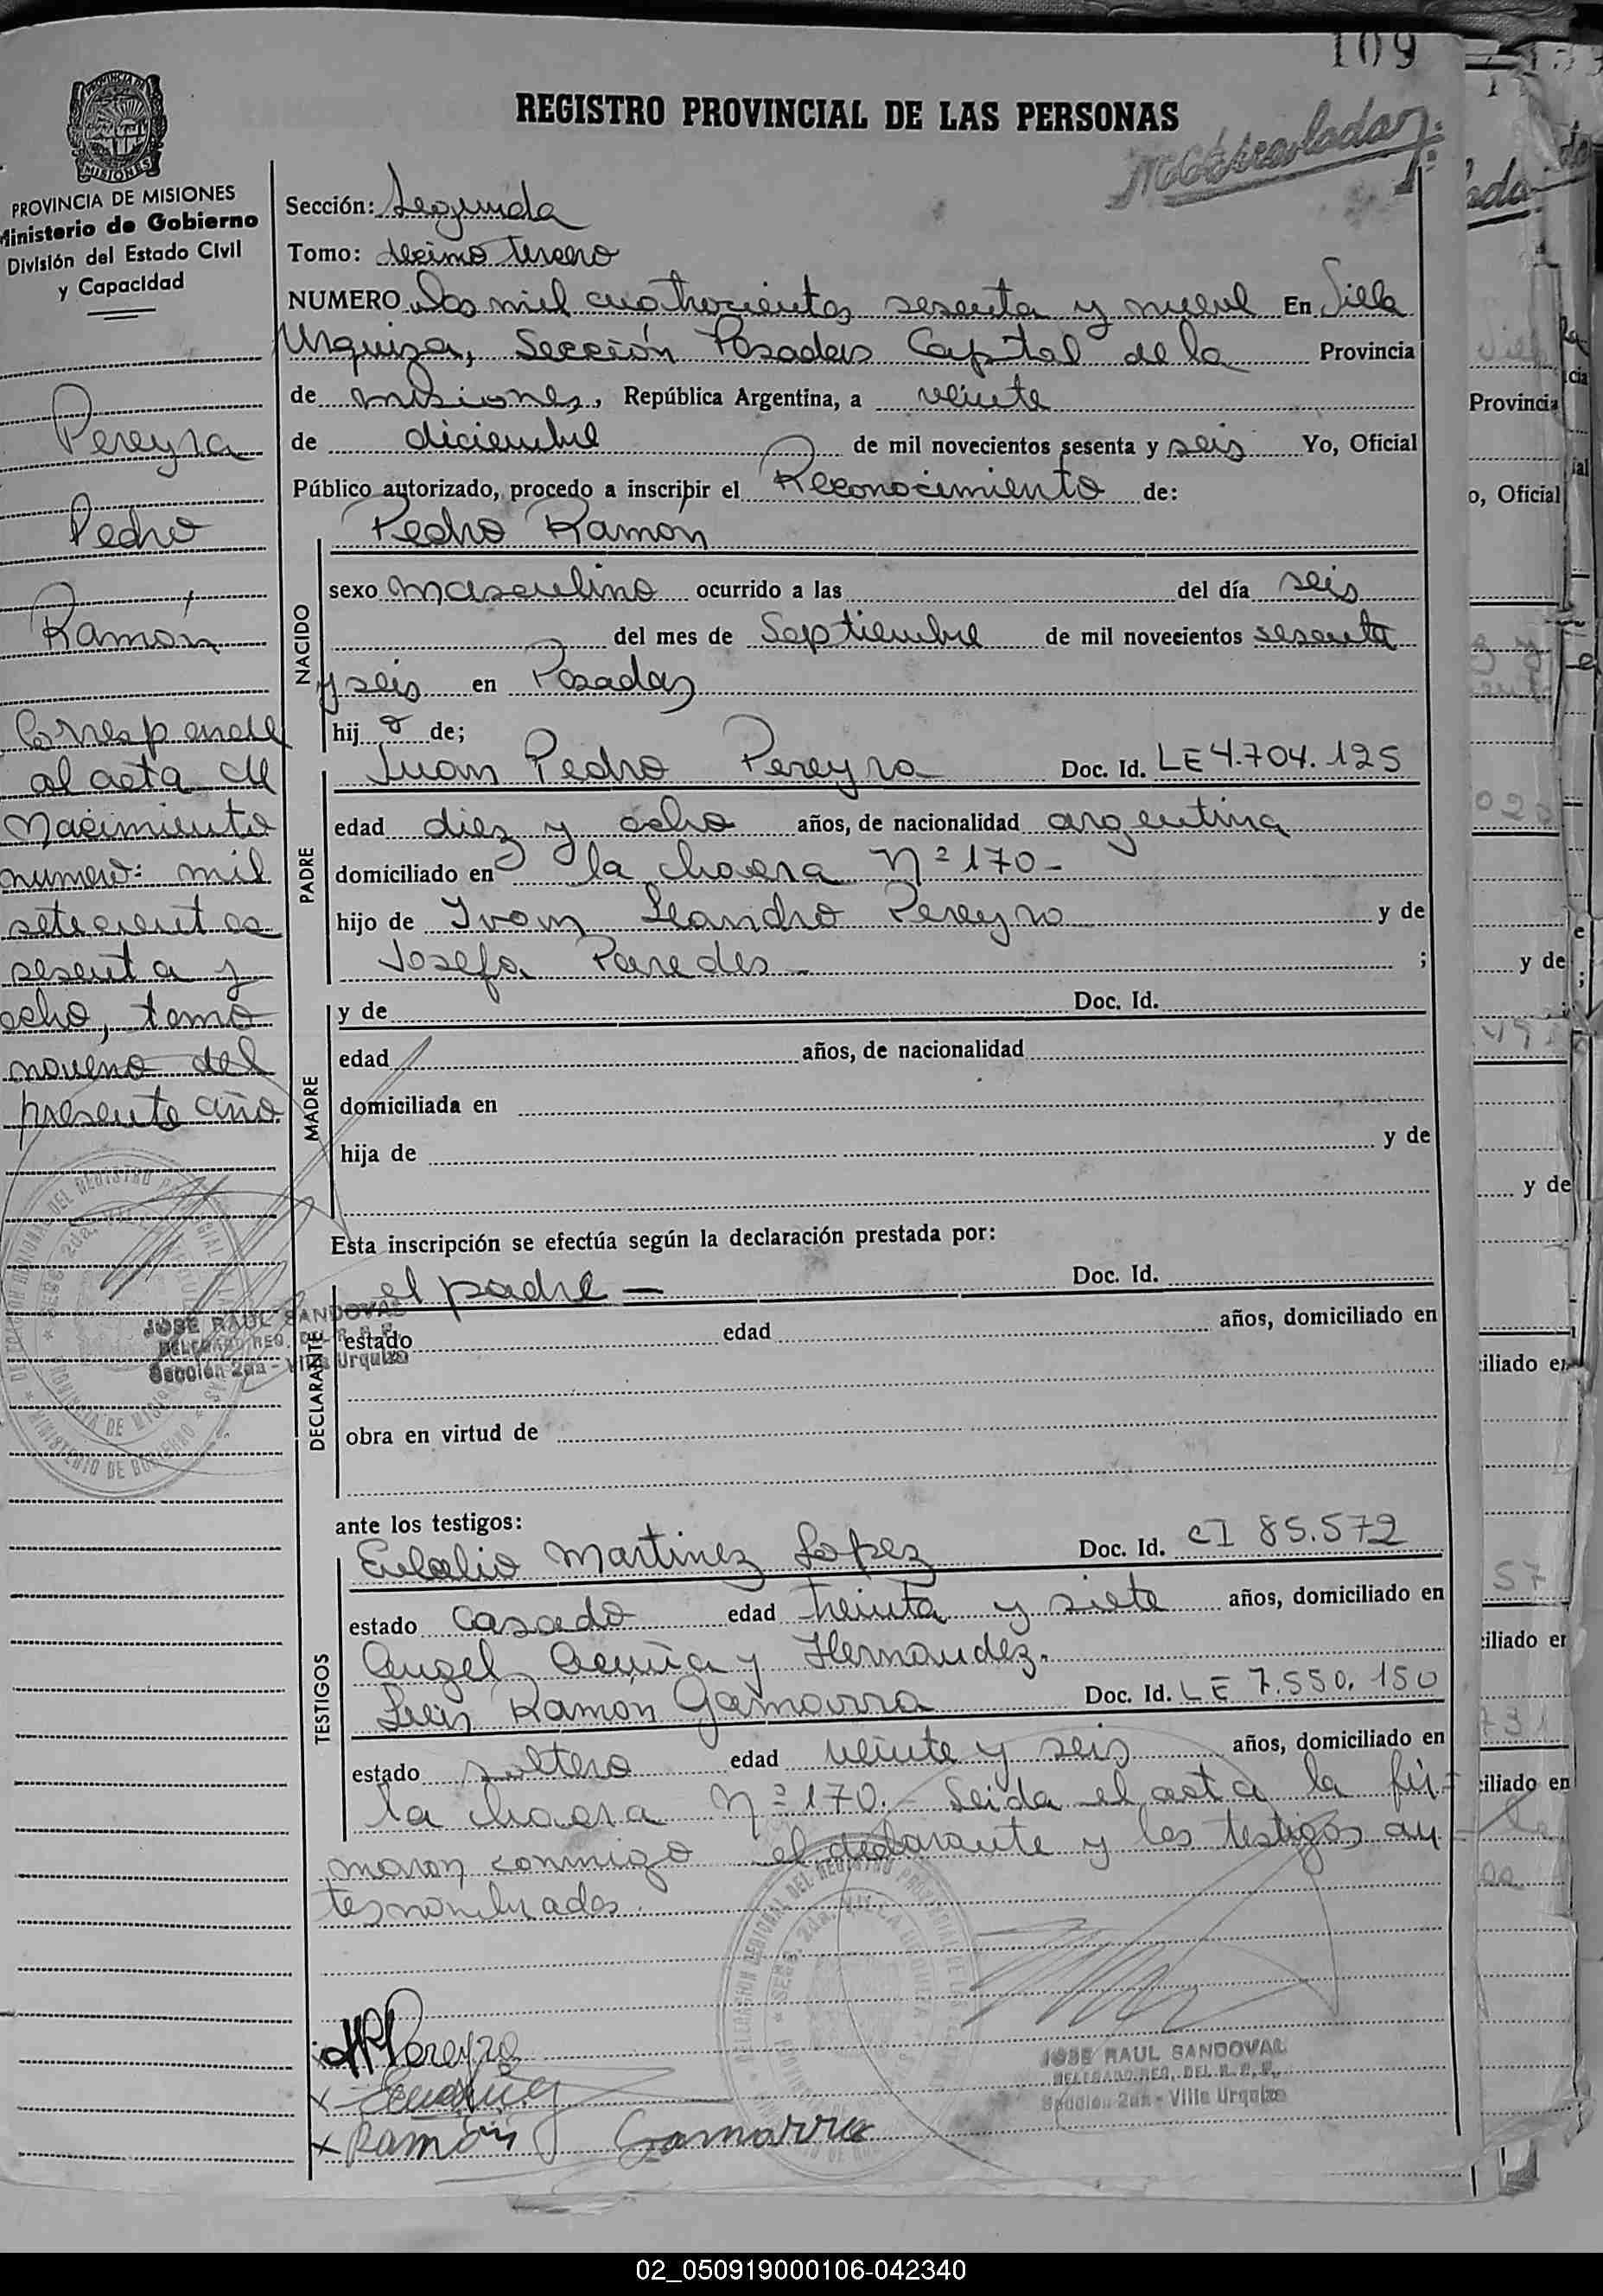 109
REGISTRO PROVINCIAL DE LAS PERSONAS
PROVINCIA DE MISIONES
Ministerio de Gobierno
División del Estado Civil
y Capacidad
Pereyra
Pedro
Ramón
Corresponde
al acta de
Nacimiento
numero: mil
setecientos
sesenta y
ocho, tomo
noveno del
presente año.
JOSE RAUL SANDOVAL
DELEGADO REG. DEL R. P. P.
Sección 2da - Villa Urquiza
Sección: Segunda
Tomo: decimo tercero
NUMERO Dos mil cuatrocientos sesenta y nueve En Villa
Urquiza, Sección Posadas Capital de la Provincia
de misiones, República Argentina, a veinte
de diciembre de mil novecientos sesenta y seis Yo, Oficial
Público autorizado, procedo a inscribir el Reconocimiento de:
Pedro Ramón
NACIDO
sexo masculino ocurrido a las del día seis
del mes de Septiembre de mil novecientos sesenta
y seis en Posadas
hij o de;
PADRE
Juan Pedro Pereyra Doc. Id. LE 4.704.125
edad diez y ocho años, de nacionalidad argentina
domiciliado en la chacra Nº 170 -
hijo de Ivan Leandro Pereyra y de
Josefa Paredes - ;
MADRE
y de Doc. Id.
edad años, de nacionalidad
domiciliada en
hija de y de
Esta inscripción se efectúa según la declaración prestada por:
DECLARANTE
el padre - Doc. Id.
estado edad años, domiciliado en
obra en virtud de
ante los testigos:
TESTIGOS
Eulalio Martinez Lopez Doc. Id. CI 85.572
estado casado edad treinta y siete años, domiciliado en
Angel Acuña y Hernandez.
Luis Ramón Gamarra Doc. Id. LE 7.550.150
estado soltero edad veinte y seis años, domiciliado en
la chacra Nº 170. - Leida el acta la fir=
maron conmigo el declarante y los testigos an=
tesnombrados.
Pereyra
Ramón Gamarra
JOSE RAUL SANDOVAL
DELEGADO REG. DEL R. P. P.
Sección 2da - Villa Urquiza
02_050919000106-042340